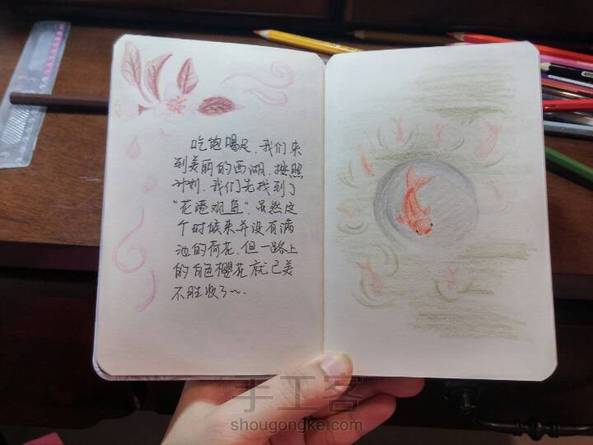 吃饱喝足,我们来
到美丽的西湖,按照
计划,我们先找到了
“花港观鱼”,虽然这
个时候来并没有满
池的荷花,但一路上
的白色樱花就已美
不胜收了~.
手工客
shougongke.com